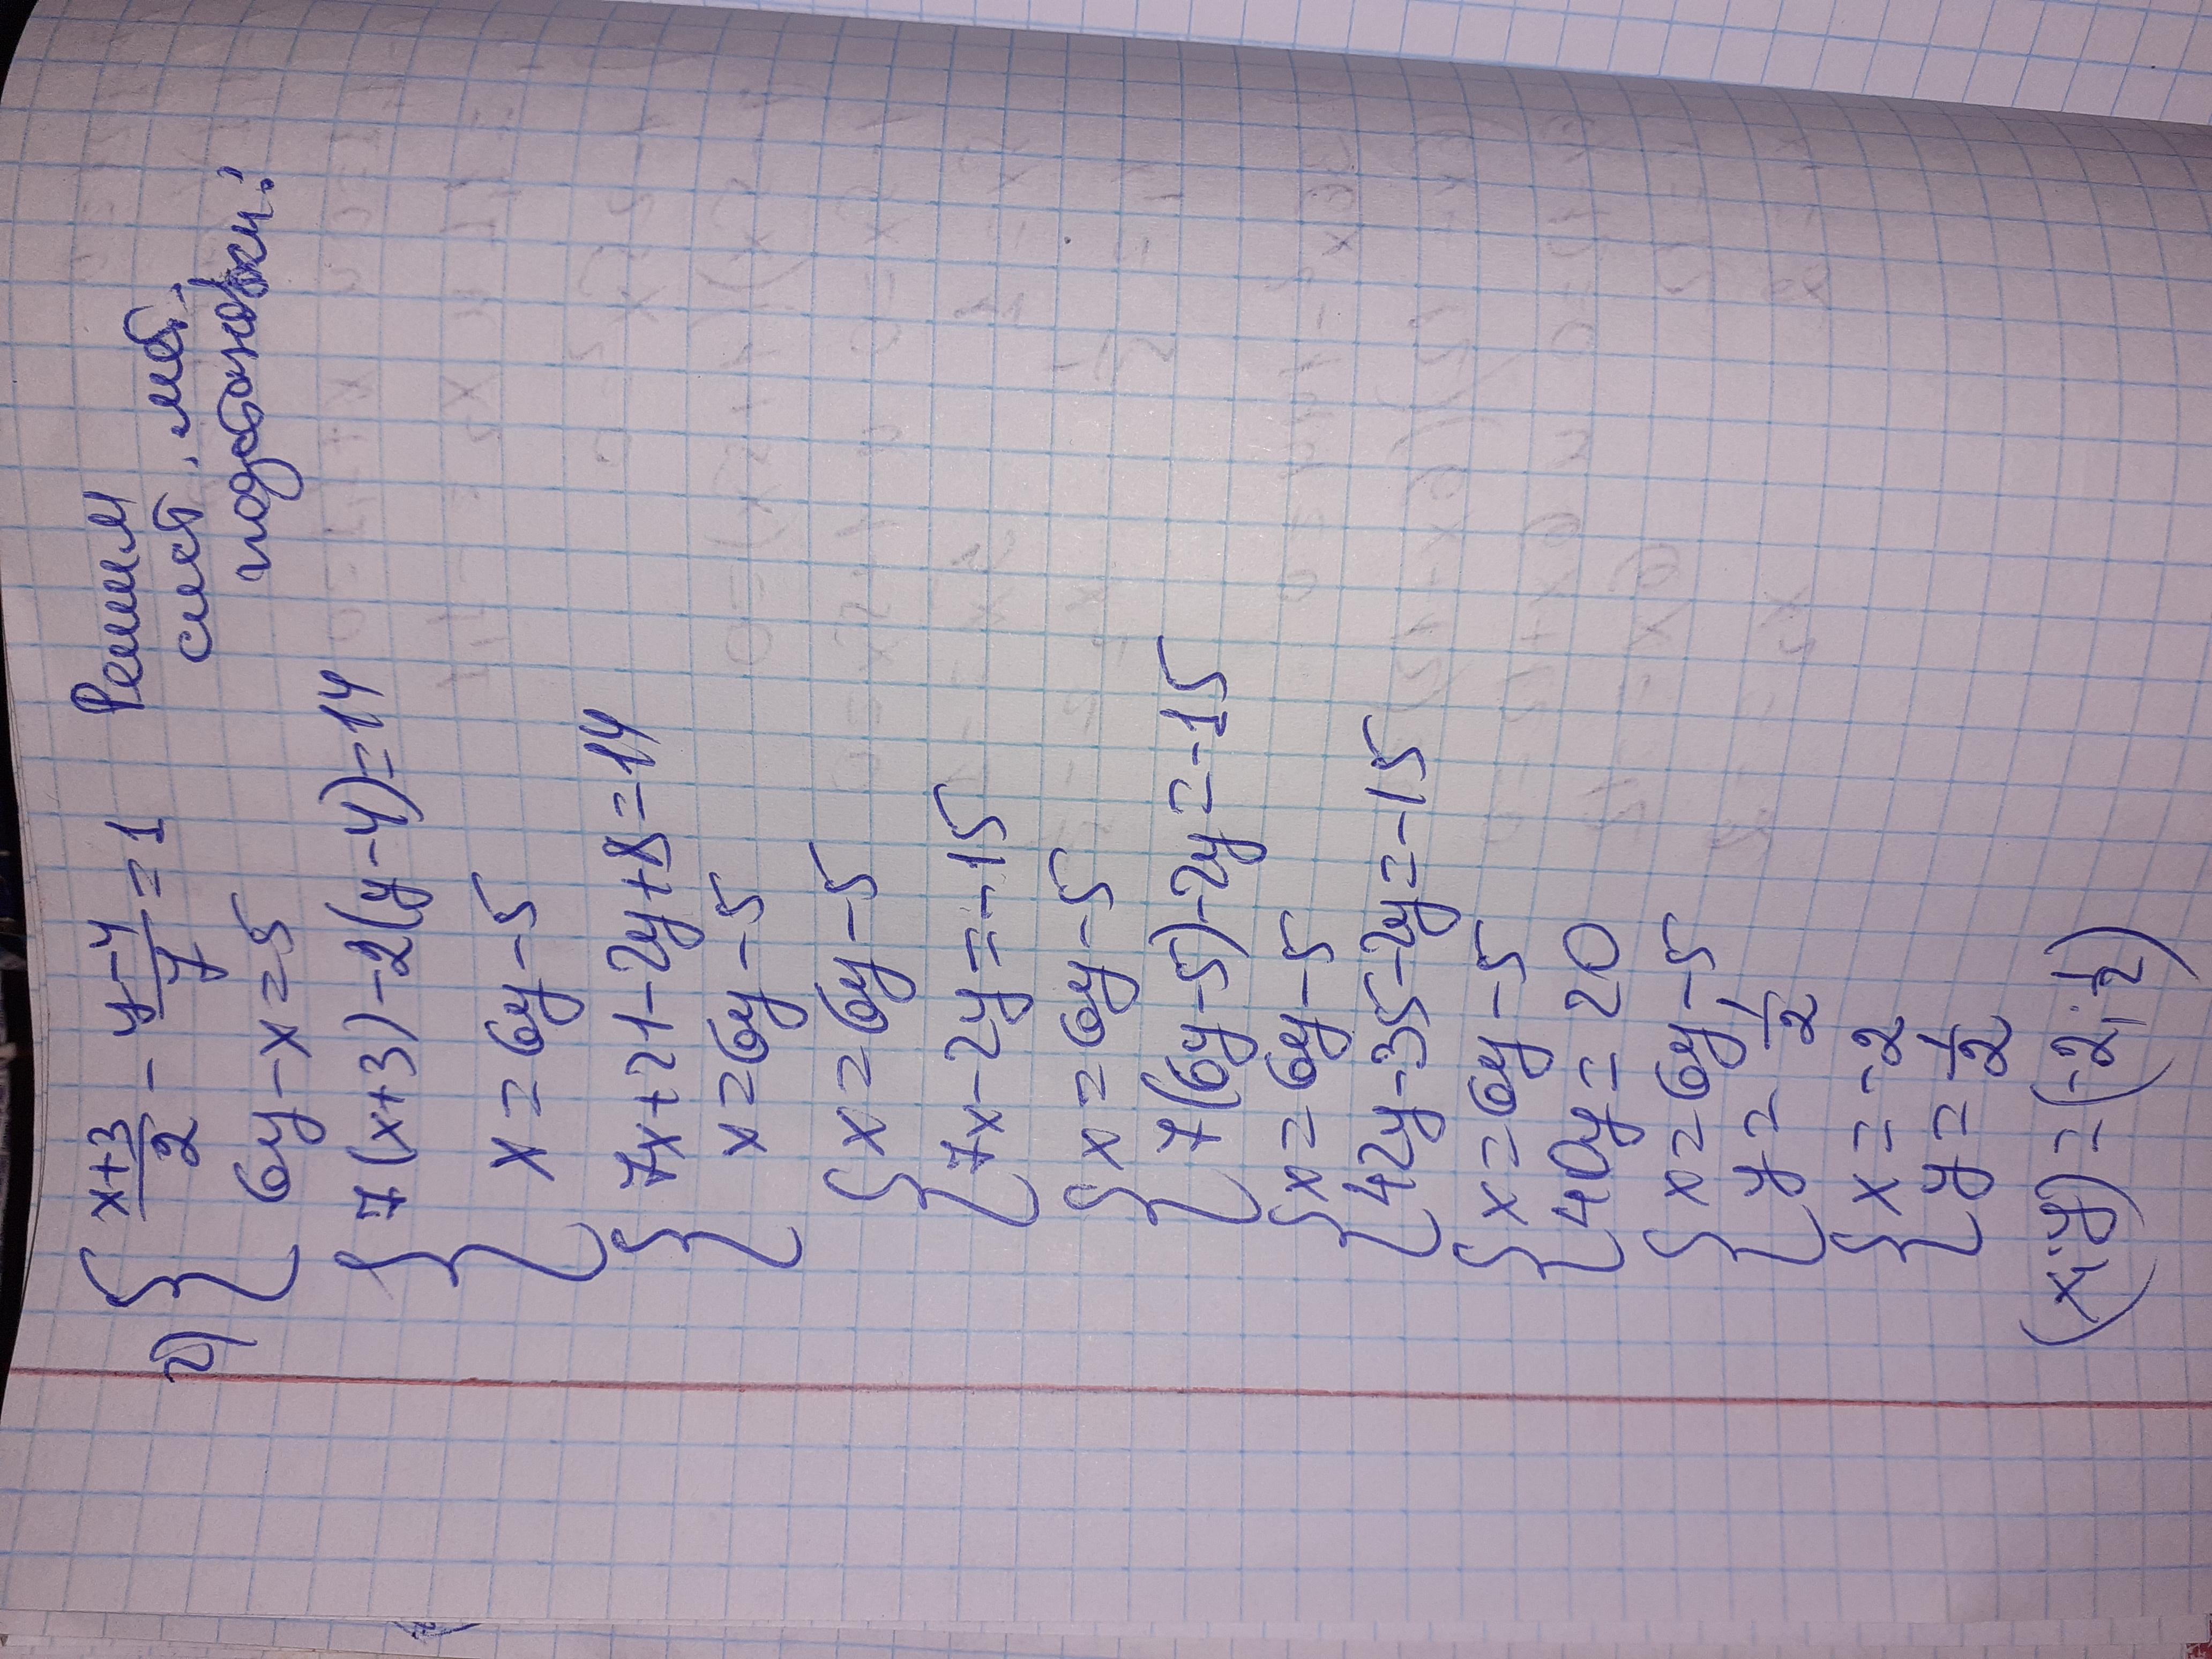 г) { (x+3)/2 - (y-4)/7 = 1 Решим
6y-x=5 сист. мет.
подстановки:
{ 7(x+3)-2(y-4)=14
x=6y-5
{ 7x+21-2y+8=14
x=6y-5
{ x=6y-5
7x-2y=-15
{ x=6y-5
7(6y-5)-2y=-15
{ x=6y-5
42y-35-2y=-15
{ x=6y-5
40y=20
{ x=6y-5
y=1/2
{ x=-2
y=1/2
(x;y)=(-2;1/2)